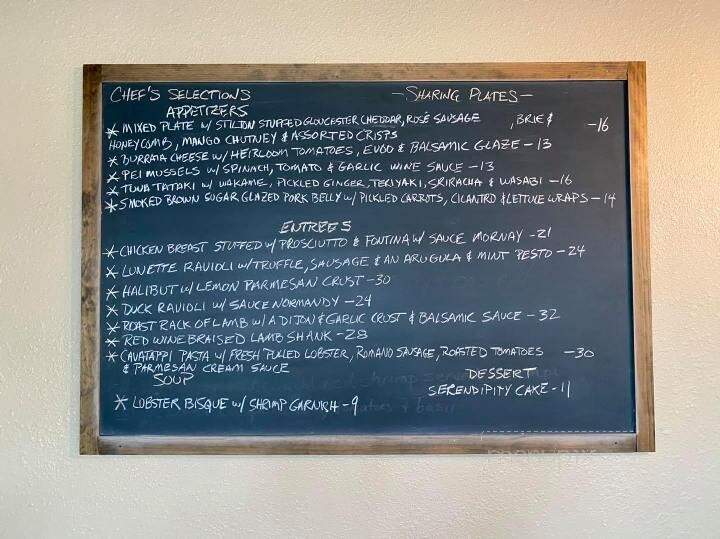 CHEF'S SELECTIONS —SHARING PLATES—
APPETIZERS
* MIXED PLATE W/ STILTON STUFFED GLOUCESTER CHEDDAR, ROSÉ SAUSAGE , BRIE & -16
HONEYCOMB, MANGO CHUTNEY & ASSORTED CRISPS
* BURRATA CHEESE W/ HEIRLOOM TOMATOES, EVOO & BALSAMIC GLAZE -13
* PEI MUSSELS W/ SPINACH, TOMATO & GARLIC WINE SAUCE -13
* TUNA TATAKI W/ WAKAME, PICKLED GINGER, TERIYAKI, SRIRACHA & WASABI -16
* SMOKED BROWN SUGAR GLAZED PORK BELLY W/ PICKLED CARROTS, CILANTRO & LETTUCE WRAPS -14
ENTREES
* CHICKEN BREAST STUFFED W/ PROSCIUTTO & FONTINA W/ SAUCE MORNAY -21
* LUNETTE RAVIOLI W/ TRUFFLE, SAUSAGE & AN ARUGULA & MINT PESTO -24
* HALIBUT W/ LEMON PARMESAN CRUST -30
* DUCK RAVIOLI W/ SAUCE NORMANDY -24
* ROAST RACK OF LAMB W/ A DIJON & GARLIC CRUST & BALSAMIC SAUCE -32
* RED WINE BRAISED LAMB SHANK -28
* CAVATAPPI PASTA W/ FRESH PULLED LOBSTER, ROMANO SAUSAGE, ROASTED TOMATOES -30
& PARMESAN CREAM SAUCE
SOUP
* LOBSTER BISQUE W/ SHRIMP GARNISH -9
DESSERT
SERENDIPITY CAKE -11